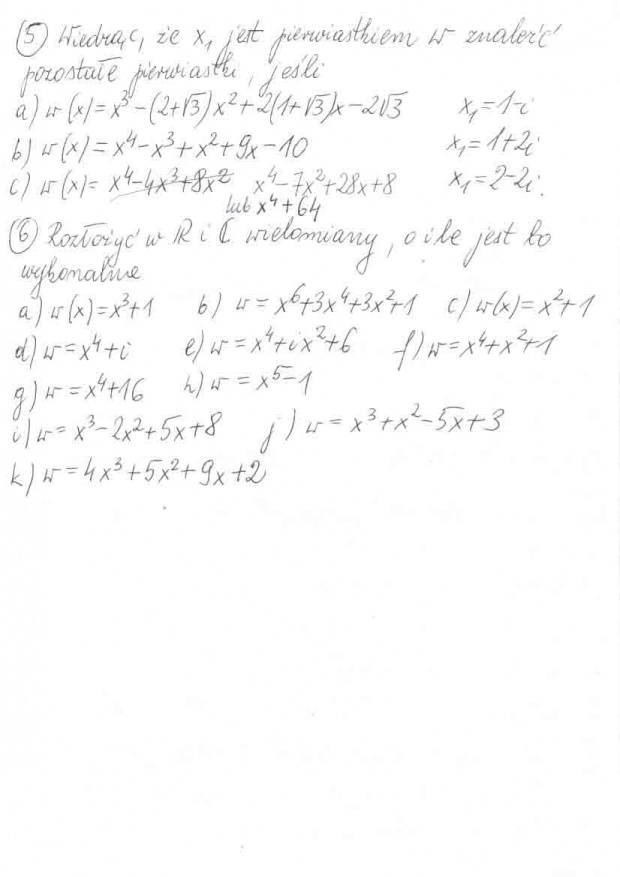 (5) Wiedząc, że x₁ jest pierwiastkiem w znaleźć
pozostałe pierwiastki, jeśli
a) w(x)=x³-(2+√3)x²+2(1+√3)x-2√3 x₁=1-i
b) w(x)=x⁴-x³+x²+9x-10 x₁=1+2i
c) w(x)= x⁴-4x³+8x² x⁴-7x²+28x+8 x₁=2-2i.
lub x⁴+64
(6) Rozłożyć w R i C wielomiany, o ile jest to
wykonalne
a) w(x)=x³+1 b) w=x⁶+3x⁴+3x²+1 c) w(x)=x²+1
d) w=x⁴+i e) w=x⁴+ix²+6 f) w=x⁴+x²+1
g) w=x⁴+16 h) w=x⁵-1
i) w=x³-2x²+5x+8 j) w=x³+x²-5x+3
k) w=4x³+5x²+9x+2